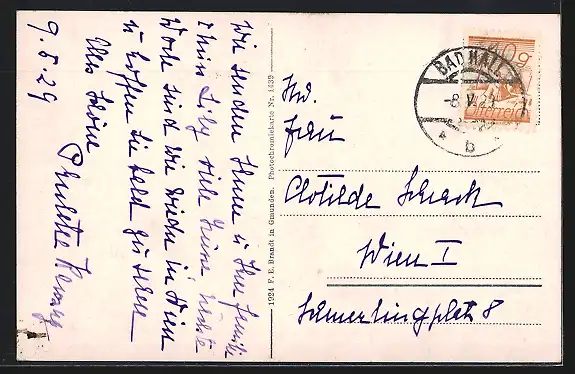 9.5.29
Wir senden Ihnen u Ihre Familie
viele Grüsse nächste
Woche sind wir wieder in Wien
u hoffen Sie bald zu sehen
Alles Schöne
1924 F. E. Brandt in Gmunden. Photochromiekarte Nr. 1439
BAD HALL
-8.V.29
b
Österreich
Frau
Clotilde Schack
Wien I
Schmerlingplatz 8